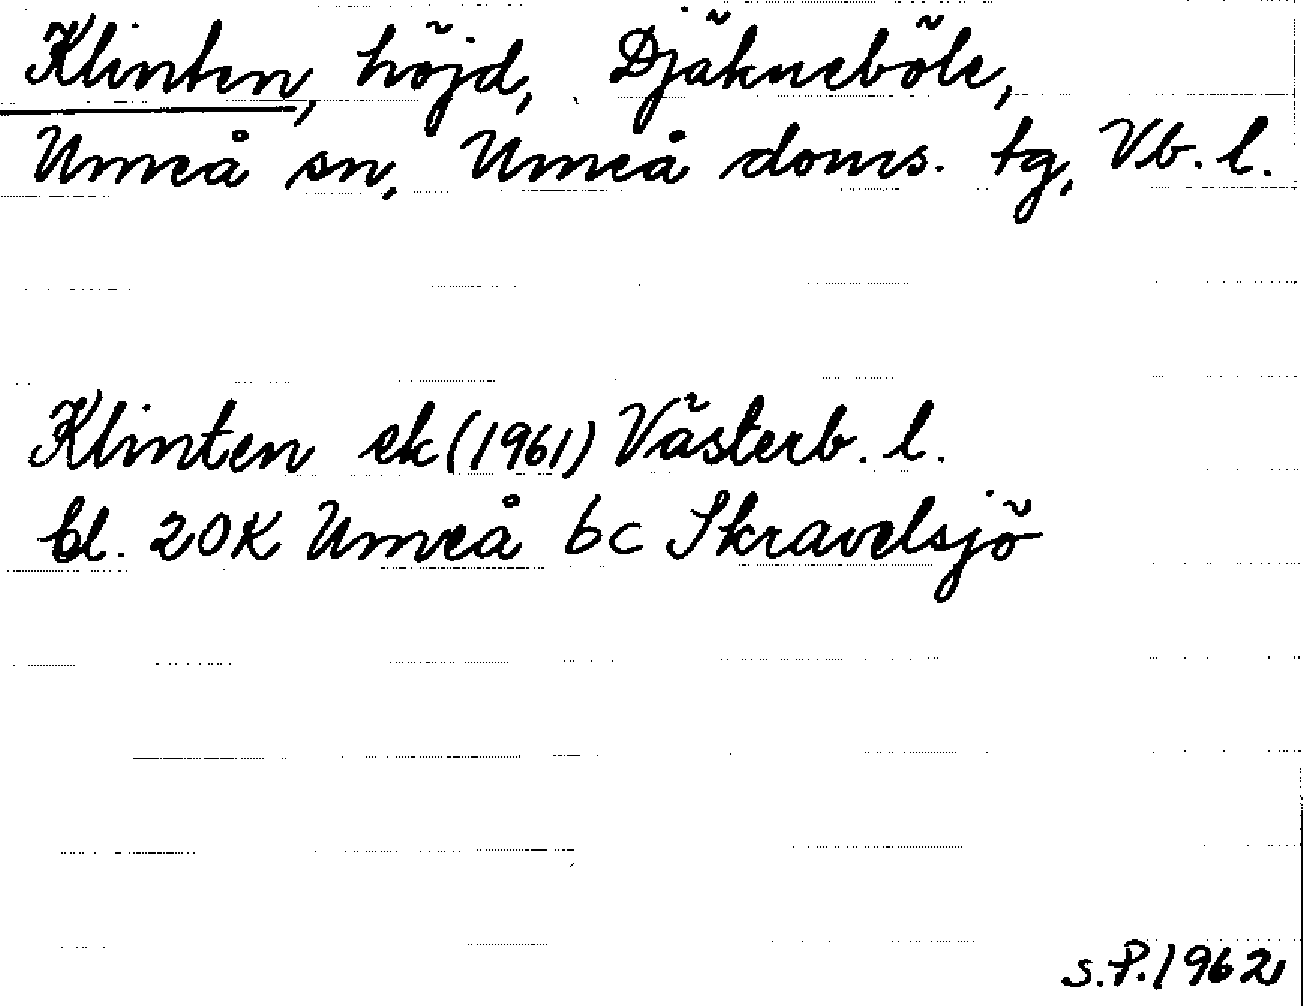 Klinten, höjd, Djäkneböle,
Umeå sn, Umeå doms. tg, Vb. l.
Klinten ek (1961) Västerb. l.
bl. 20K Umeå 6c Skravelsjö
S.P. 1962